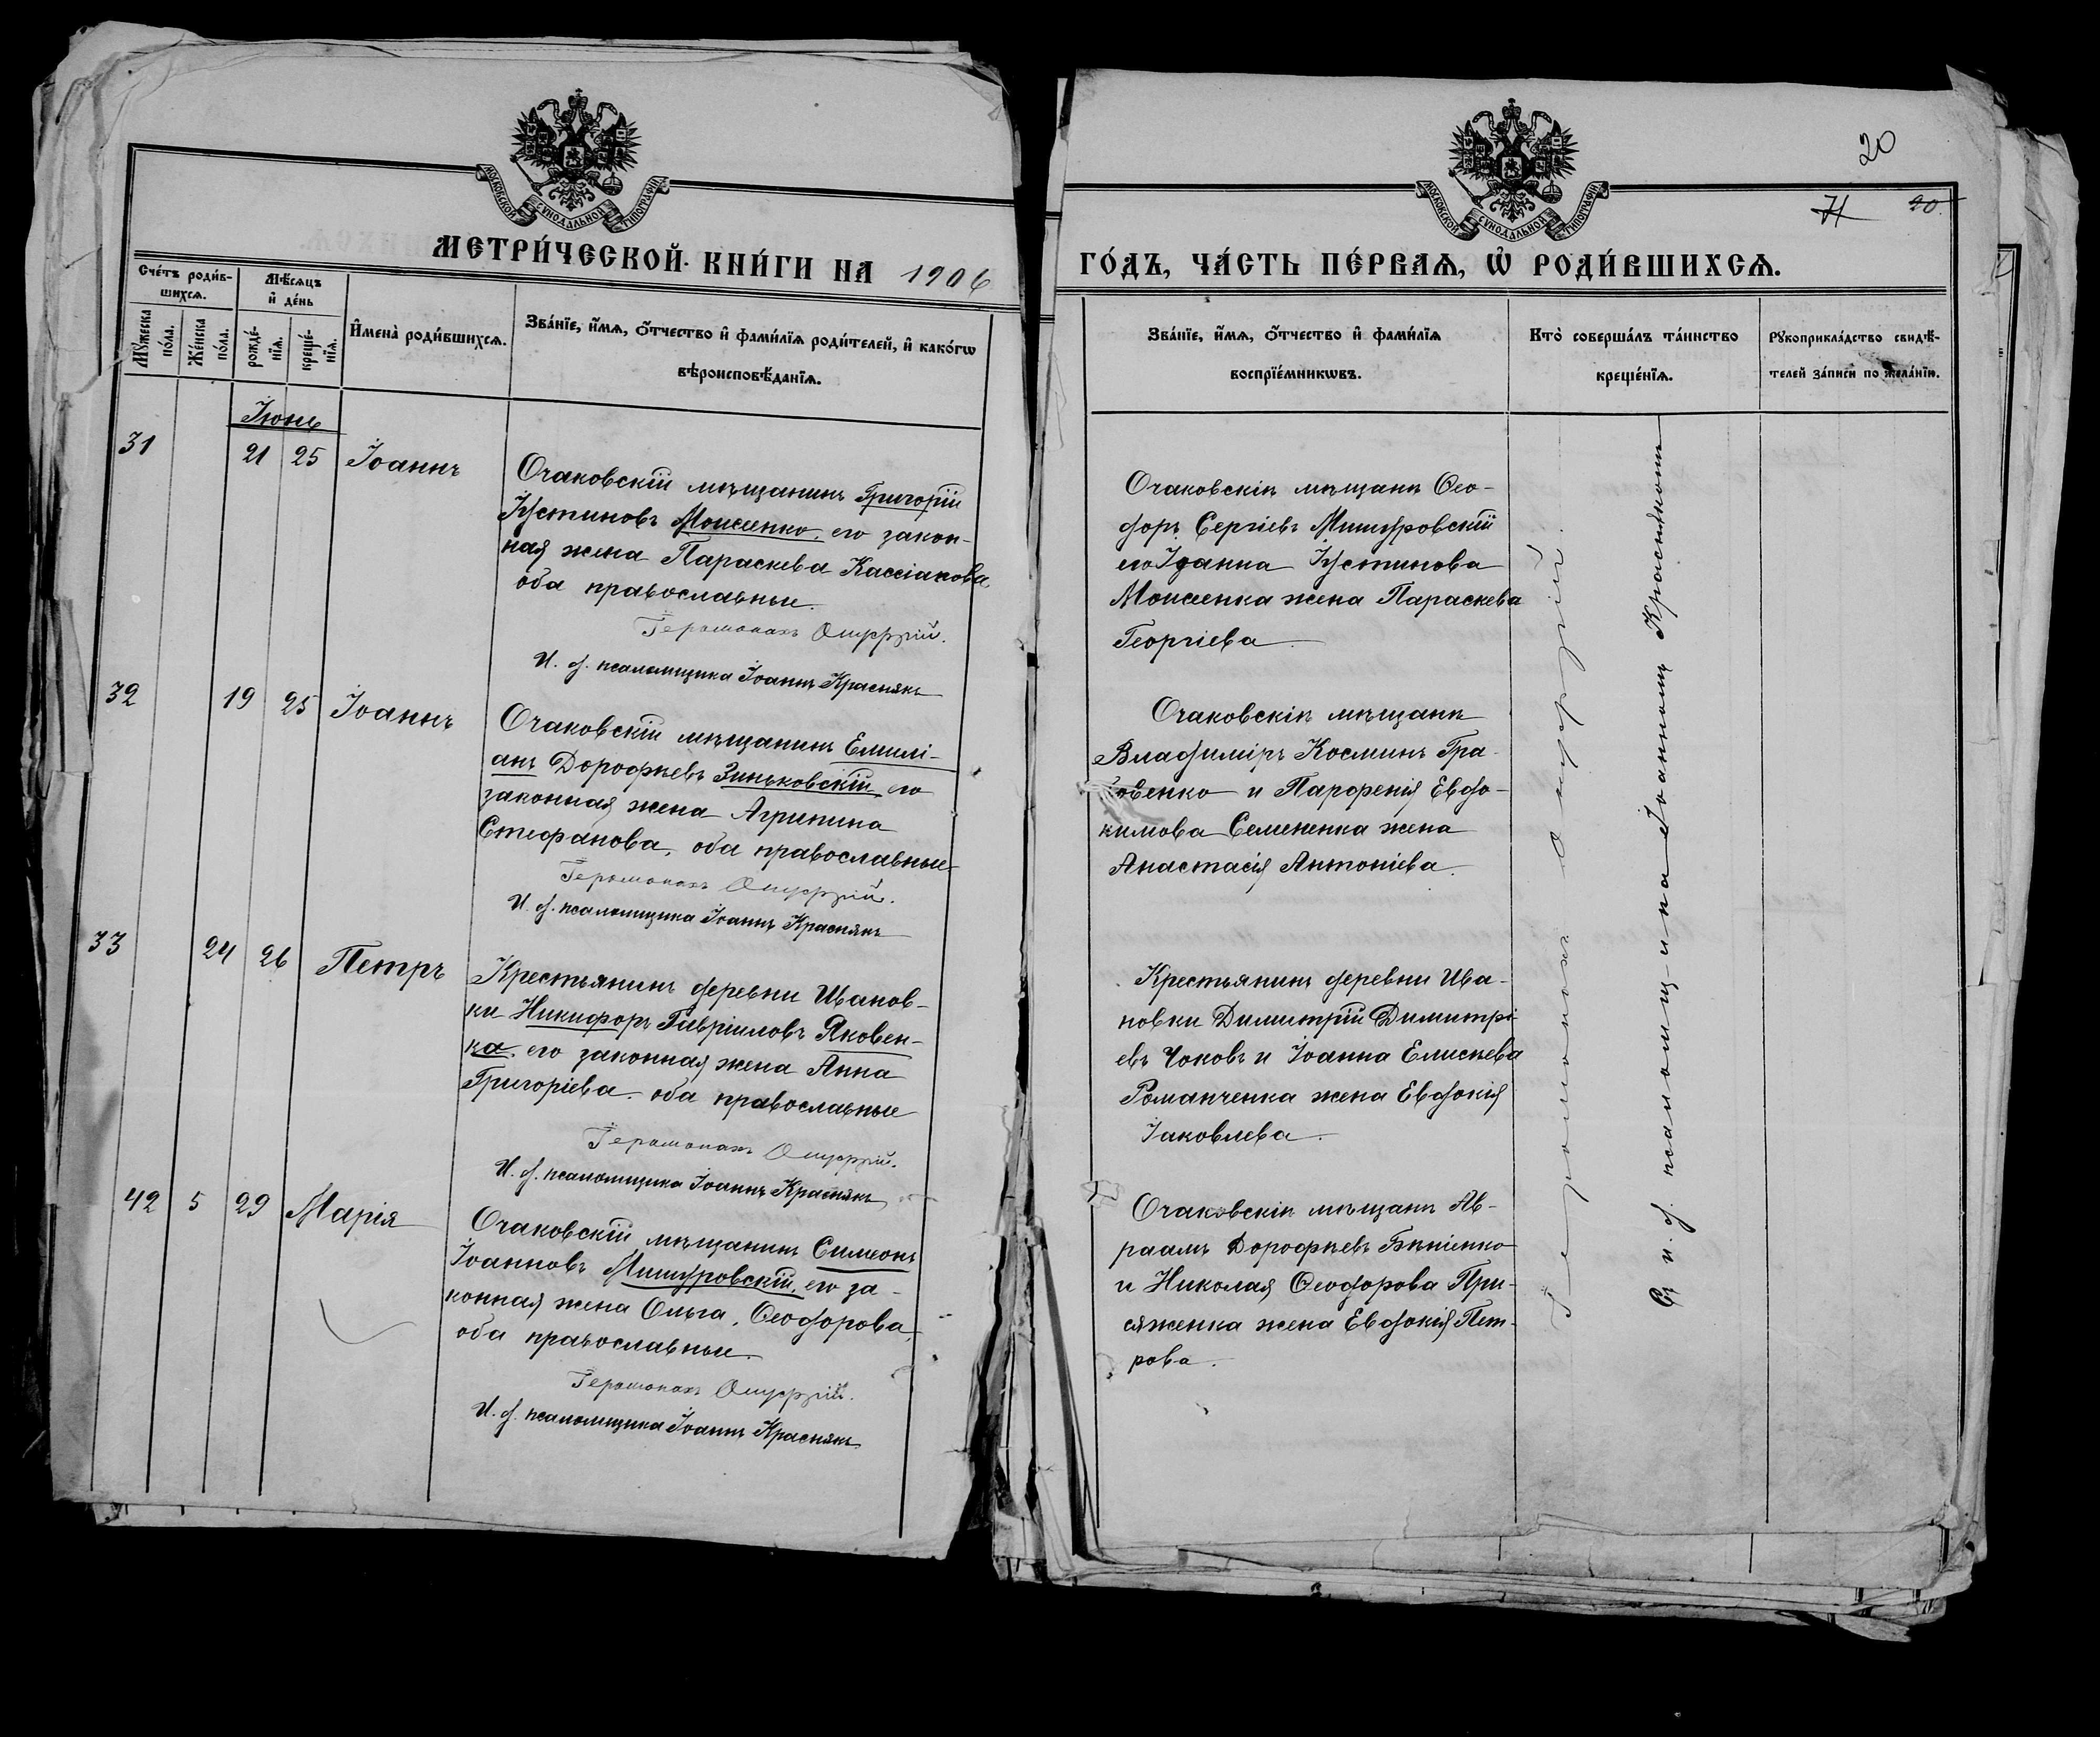 МОСКОВСКОЙ СУНОДАЛЬНОЙ ТИПОГРАФІИ
МЕТРИ́ЧЕСКОЙ КНИ́ГИ НА 1906
Сче́тъ роди́в-
шихсѧ.
Мѣ́сѧцъ
и҆ де́нь
Мꙋ́жеска
по́ла.
Же́нска
по́ла.
рожде́-
нїѧ.
креще́-
нїѧ.
И҆мена̀ роди́вшихсѧ.
Зва́нїе, и҆́мѧ, ѻ҆́тчество и҆ фами́лїѧ роди́телей, и҆ како́гѡ
вѣроисповѣ́данїѧ.
Іюнь
31 21 25 Іоаннъ
Очаковскій мѣщанинъ Григорій
Іустиновъ Моисеенко, его закон-
ная жена Параскева Кассіанова,
оба православные.
Іеромонахъ Онуфрій.
И. д. псаломщика Іоаннъ Краснянъ
32 19 25 Іоаннъ
Очаковскій мѣщанинъ Емилі-
анъ Дорофѣевъ Зиньковскій его
законная жена Агрипина
Стефанова, оба православные
Іеромонахъ Онуфрій.
И. д. псаломщика Іоаннъ Краснянъ
33 24 26 Петръ
Крестьянинъ деревни Иванов-
ки Никифоръ Гавріиловъ Яковен-
ка, его законная жена Анна
Григоріева. оба православные
Іеромонахъ Онуфрій.
И. д. псаломщика Іоаннъ Краснянъ
42 5 29 Марія
Очаковскій мѣщанинъ Симеонъ
Іоанновъ Мишуровскій, его за-
конная жена Ольга, Ѳеодорова,
оба православные.
Іеромонахъ Онуфрій.
И. д. псаломщика Іоаннъ Краснянъ
20
20.
МОСКОВСКОЙ СУНОДАЛЬНОЙ ТИПОГРАФІИ
ГО́ДЪ, ЧА́СТЬ ПЕ́РВАѦ, Ѡ҆ РОДИ́ВШИХСѦ.
Зва́нїе, и҆́мѧ, ѻ҆́тчество и҆ фами́лїѧ
воспрїе́мникѡвъ.
Кто̀ соверша́лъ та́инство
креще́нїѧ.
Рꙋкоприкла́дство свидѣ́-
телей за́писи по жела́нїю.
Очаковскіе мѣщане Ѳео-
доръ Сергіевъ Мишуровскій
его Іоанна Іустинова
Моисеенка жена Параскева
Георгіева.
Очаковскіе мѣщане
Владиміръ Косминъ Гра-
товенко и Парфенія Евдо-
кимова Семененка жена
Анастасія Антоніева.
Крестьянинъ деревни Ива-
новки Димитрій Димитрі-
евъ Чоковъ и Іоанна Елисѣева
Романченка жена Евдокія
Іаковлева.
Очаковскіе мѣщане Ав-
раамъ Дорофѣевъ
и Николая Ѳеодорова При-
сяженка жена Евдокія Пет-
рова.
Іеромонахъ Онуфрій.
Съ и. д. псаломщика Іоанномъ